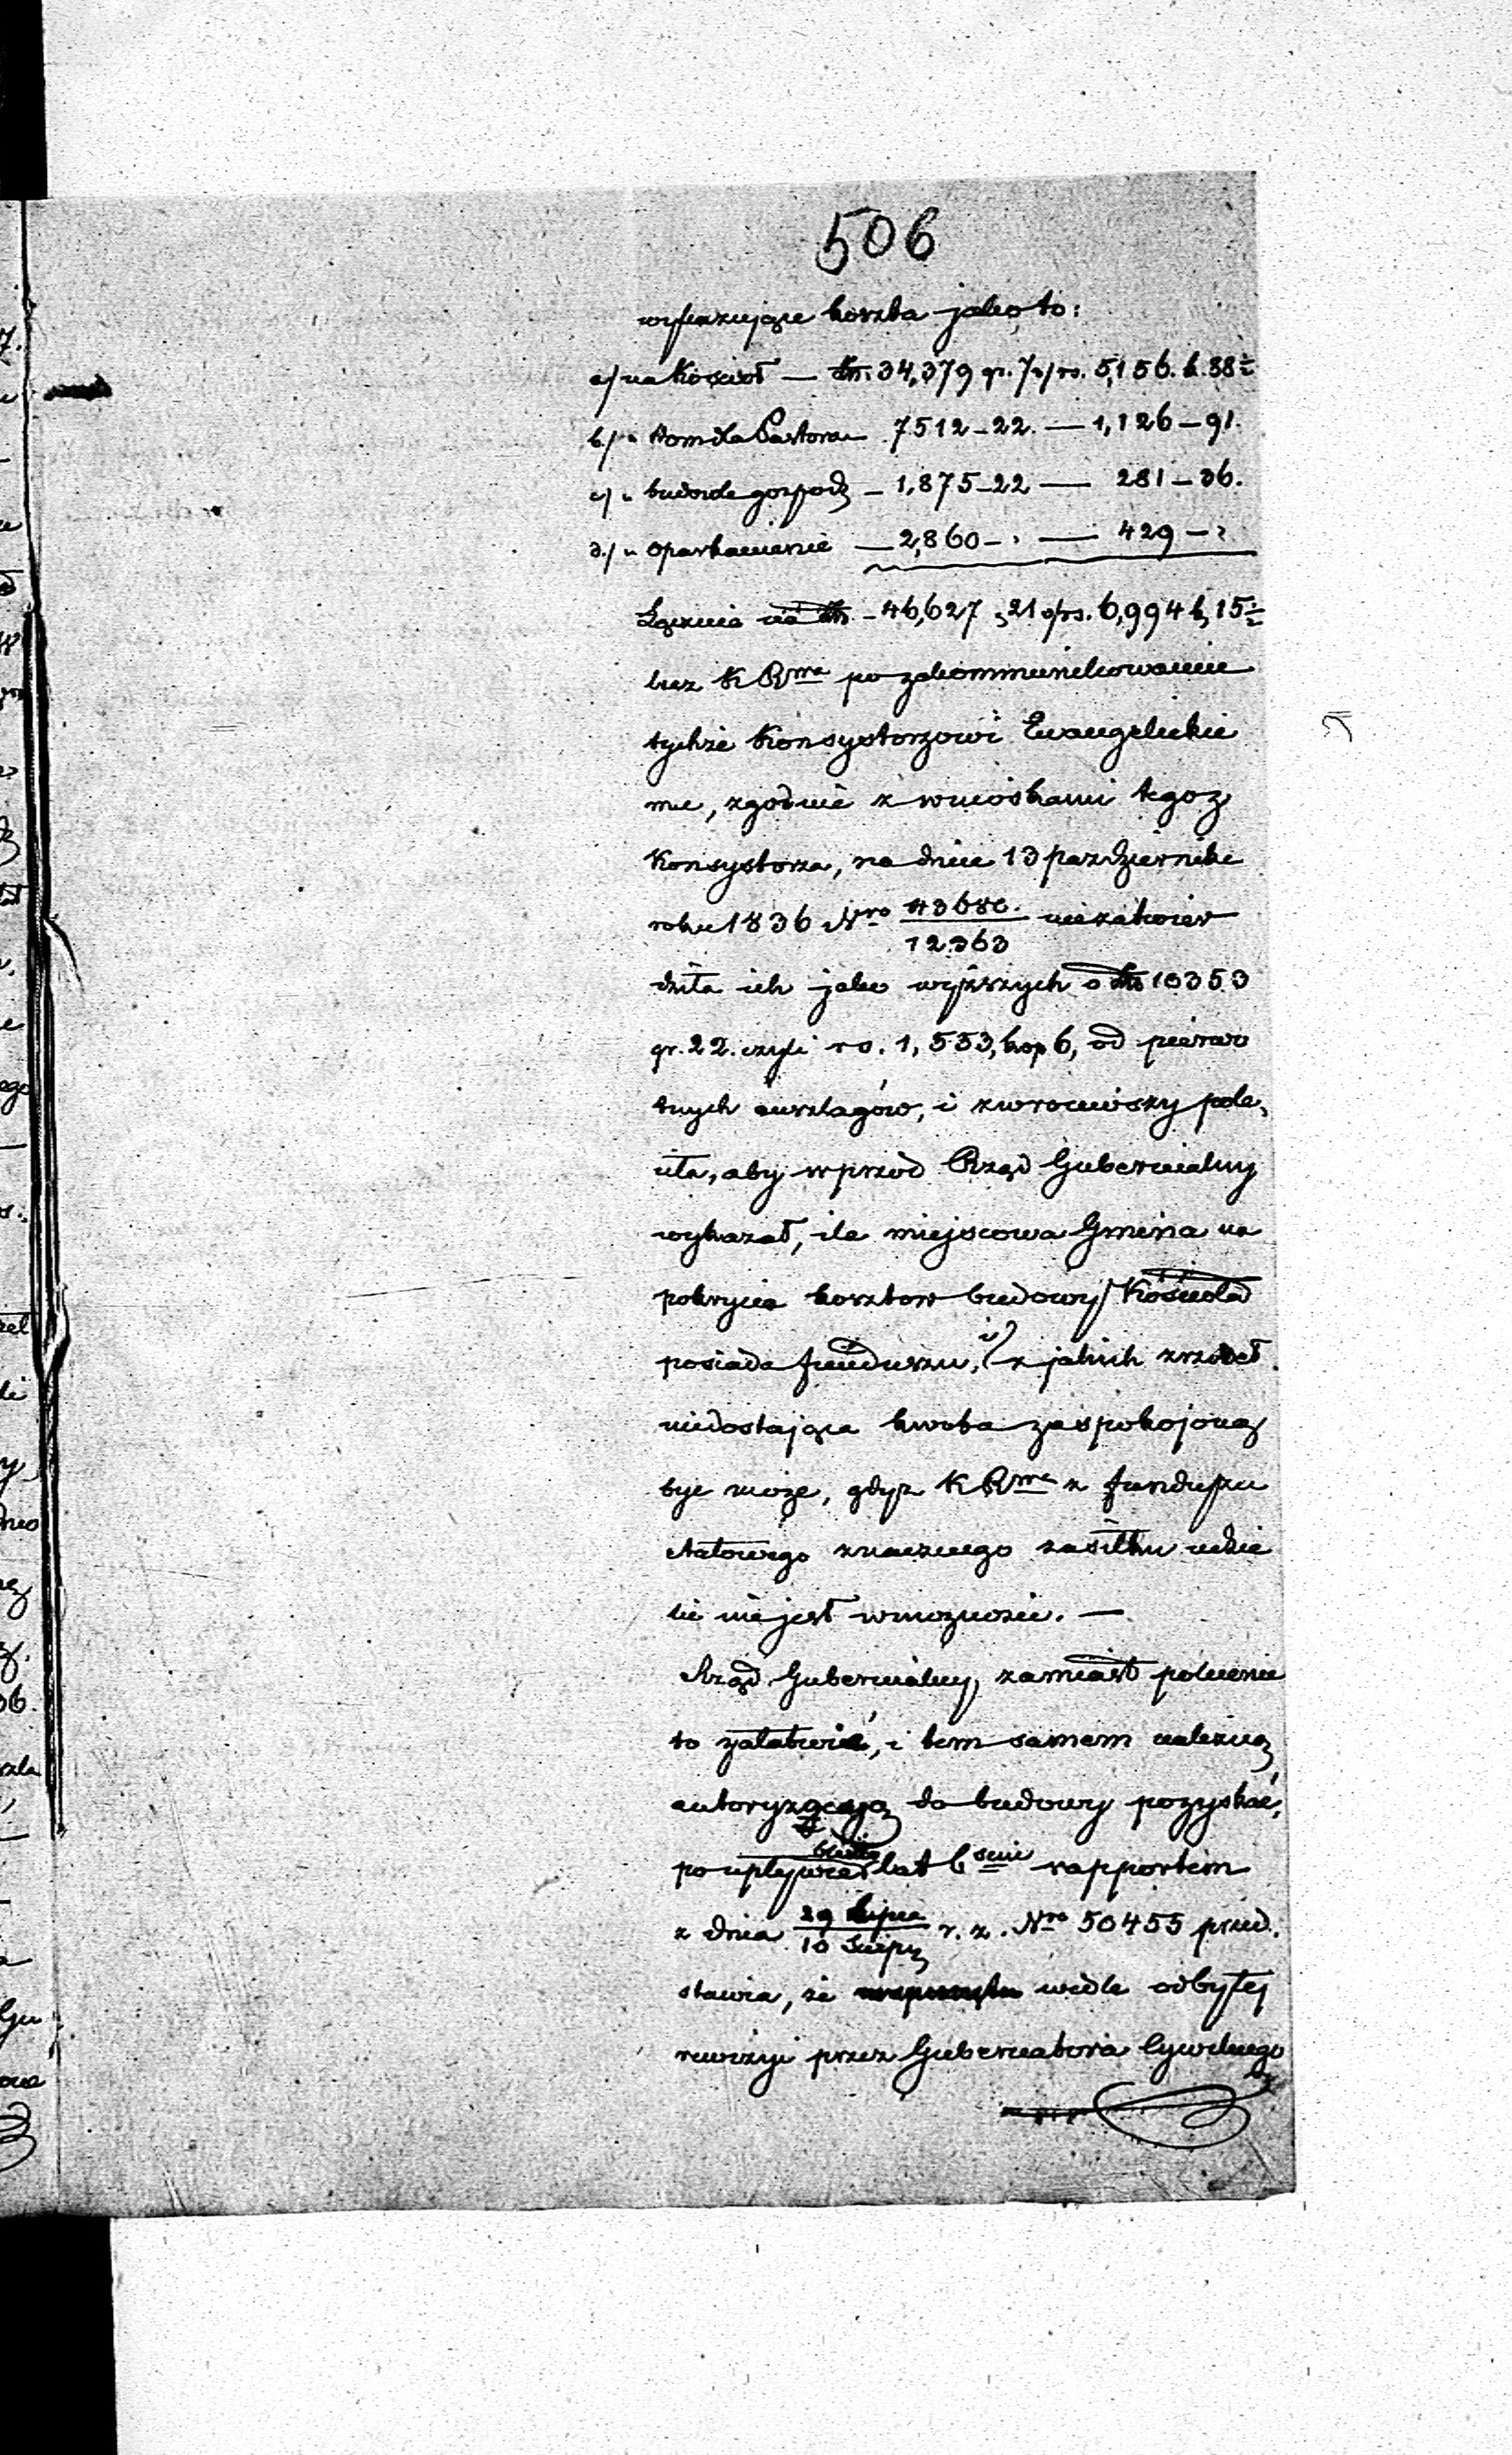 506
wykazujące koszta jako to:
a/ na Kościoł — złt. 34,379 gr. 7 s/ rs. 5,156. k. 88½
b./ " Dom dla Pastora — 7512 – 22. — 1,126 – 91.
c/ " budowle gospodr – 1,875 – 22 — 281 – 36.
d./ " oparkanienie — 2,860 – " — 429 – "
Łącznie na złt – 46,627 " 21 rs. 6,994 k. 15½
lecz K R po zakommunikowaniu
tychże Konsystorzowi Ewangelickie
mu, zgodnie z wnioskami tegoż
Konsystorza, na dniu 13 października
roku 1836 Nro 43686/12363 niezatwier
dziła ich jako wyższych o złt 10353
gr. 22. czyli rs. 1,553, kop 6, od pierwo
tnych anszlagów, i zwrociwszy pole,
ciła, aby wprzód Rząd Gubernialny
wykazał, ile miejscowa Gmina na
pokrycie kosztow budowy Kościoła
posiada funduszu, i z jakich zrzodeł
niedostająca kwota zaspokojoną
być może, gdyż K R z funduszu
etatowego znacznego zasiłku udzie
lić nie jest wmożności. —
Rząd Gubernialny, zamiast polecenie
to załatwić, i tem samem należną
autoryzacją do budowy pozyskać,
po upływie lat 6 sciu rapportem
z dnia 29 Lipca/10 Sierp r. z. Nro 50455 przed.
stawia, że wedle odbytej
rewizyi przez Gubernatora Cywilnego